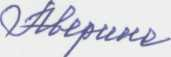 Аверина